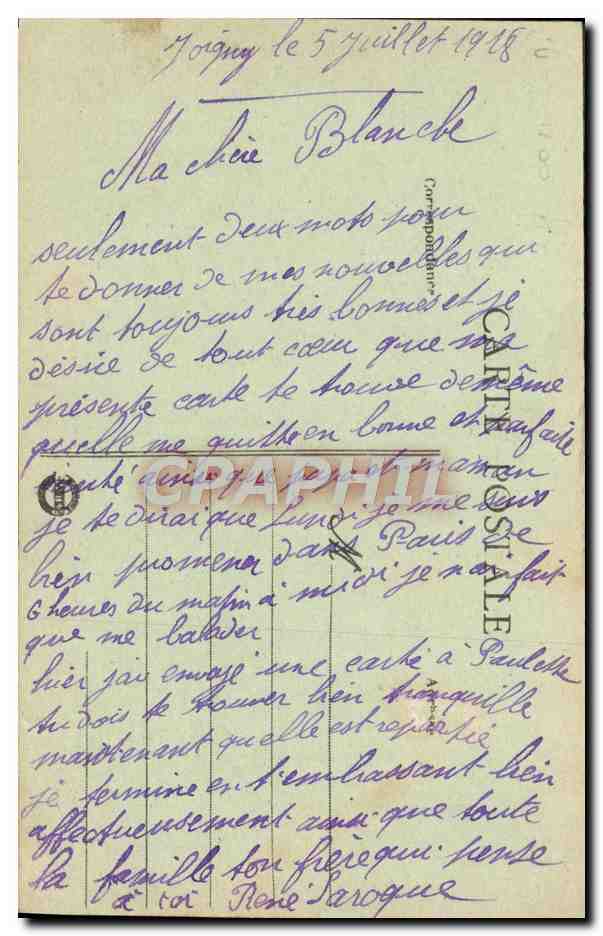 Joigny le 5 Juillet 1918
Ma chère Blanche
seulement deux mots pour
te donner de mes nouvelles qui
sont toujours très bonnes et je
désire de tout cœur que ma
présente carte te trouve de même
quelle me quitte en bonne et parfaite
santé ainsi que papa et maman
je te dirai que Lundi je me suis
bien promener dans Paris de
6 heures du matin à midi je n'ai fait
que me balader
hier j'ai envoyé une carte à Paulette
tu dois te trouver bien tranquille
maintenant quelle est repartie
je termine en t'embrassant bien
affectueusement ainsi que toute
la famille ton frère qui pense
à toi René Laroque
Correspondance
CARTE POSTALE
Adresse
CPARAPHIL